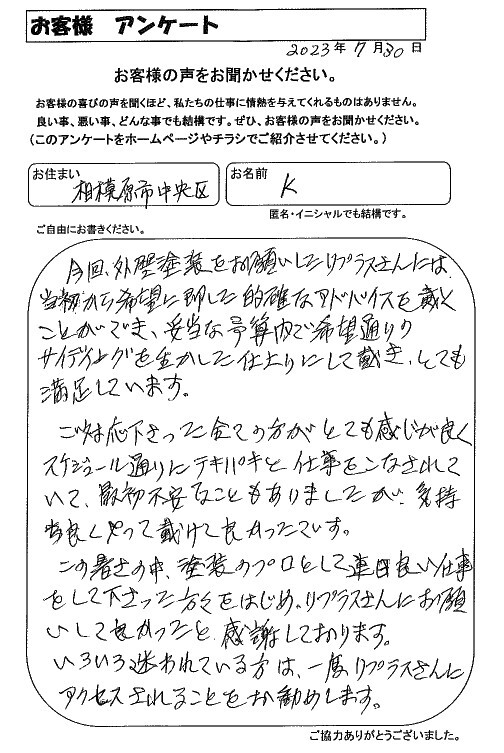 お客様 アンケート
2023年 7月30日
お客様の声をお聞かせください。
お客様の喜びの声を聞くほど、私たちの仕事に情熱を与えてくれるものはありません。
良い事、悪い事、どんな事でも結構です。ぜひ、お客様の声をお聞かせください。
(このアンケートをホームページやチラシでご紹介させてください。)
お住まい 相模原市中央区
お名前 K
匿名・イニシャルでも結構です。
ご自由にお書きください。
今回、外壁塗装をお願いしたリプラスさんには、
当初から希望に即した的確なアドバイスを戴く
ことができ、妥当な予算内で希望通りの
サイディングを生かした仕上りにして戴き、とても
満足しています。
ご対応下さった全ての方がとても感じが良く
スケジュール通りにテキパキと仕事をこなされて
いて、最初不安なこともありましたが、気持
ち良くやって戴けて良かったです。
この暑さの中、塗装のプロとして連日良い仕事
をして下さった方々をはじめ、リプラスさんにお願
いして良かったと感謝しております。
いろいろ迷われている方は、一度リプラスさんに
アクセスされることをお勧めします。
ご協力ありがとうございました。